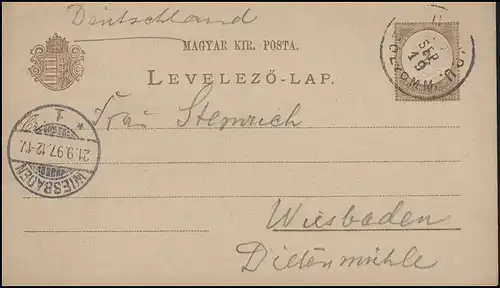 Deutschland
MAGYAR KIR. POSTA.
LEVELEZŐ-LAP.
SEP
19
Frau Steinrich
1
21.9.97.12-1V.
WIESBADEN
Wiesbaden
Dietenmühle